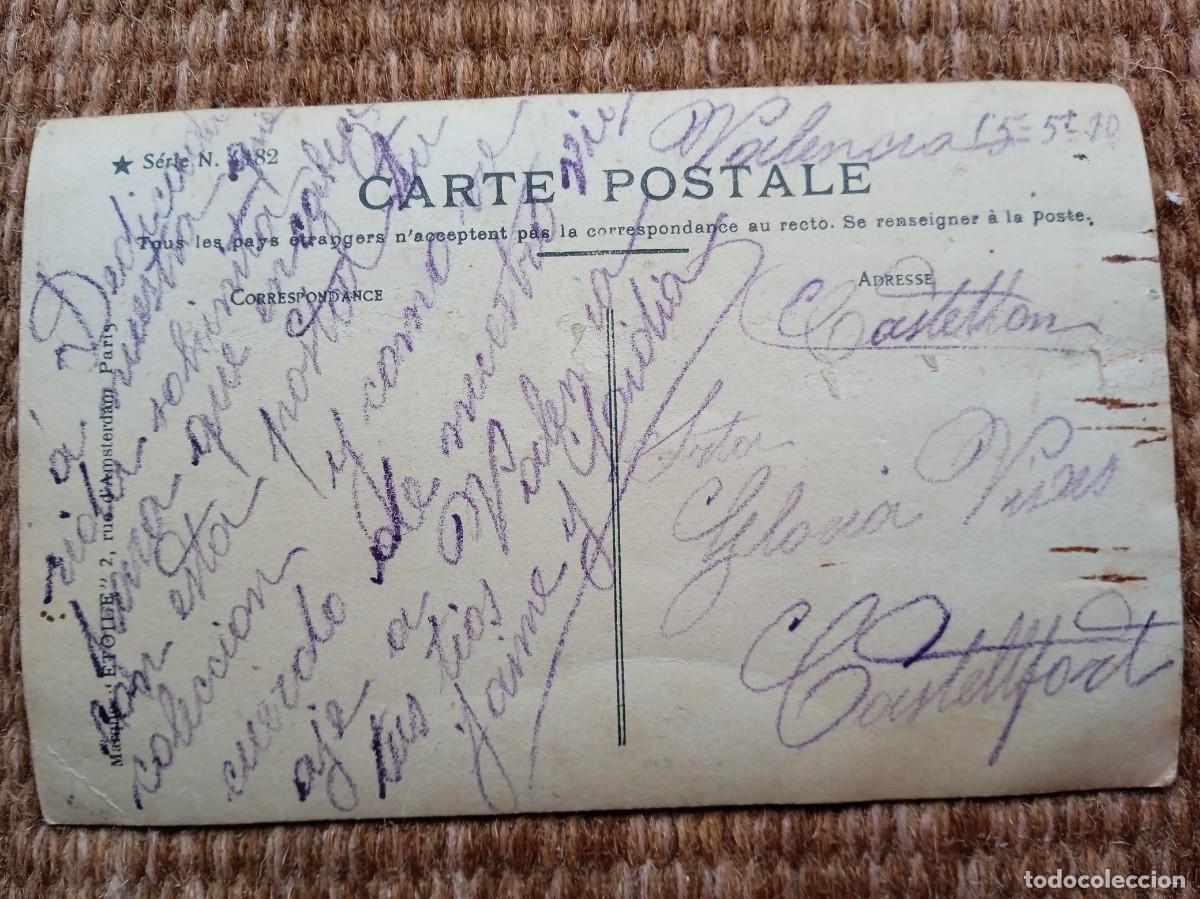 ★ Série N. 182
CARTE POSTALE
Tous les pays étrangers n'acceptent pas la correspondance au recto. Se renseigner à la Poste.
CORRESPONDANCE
ADRESSE
Marque "ETOILE" 2, rue d'Amsterdam, Paris
Valencia 15=5º 10
Dedicada
á nuestra
sobrinita
que
en esta postal tu
coleccion y como re
cuerdo de nuestro vi
aje a Valencia
tus tios
Jaime y
Castellon
Srta
Gloria Vives
Castellfort
todocoleccion